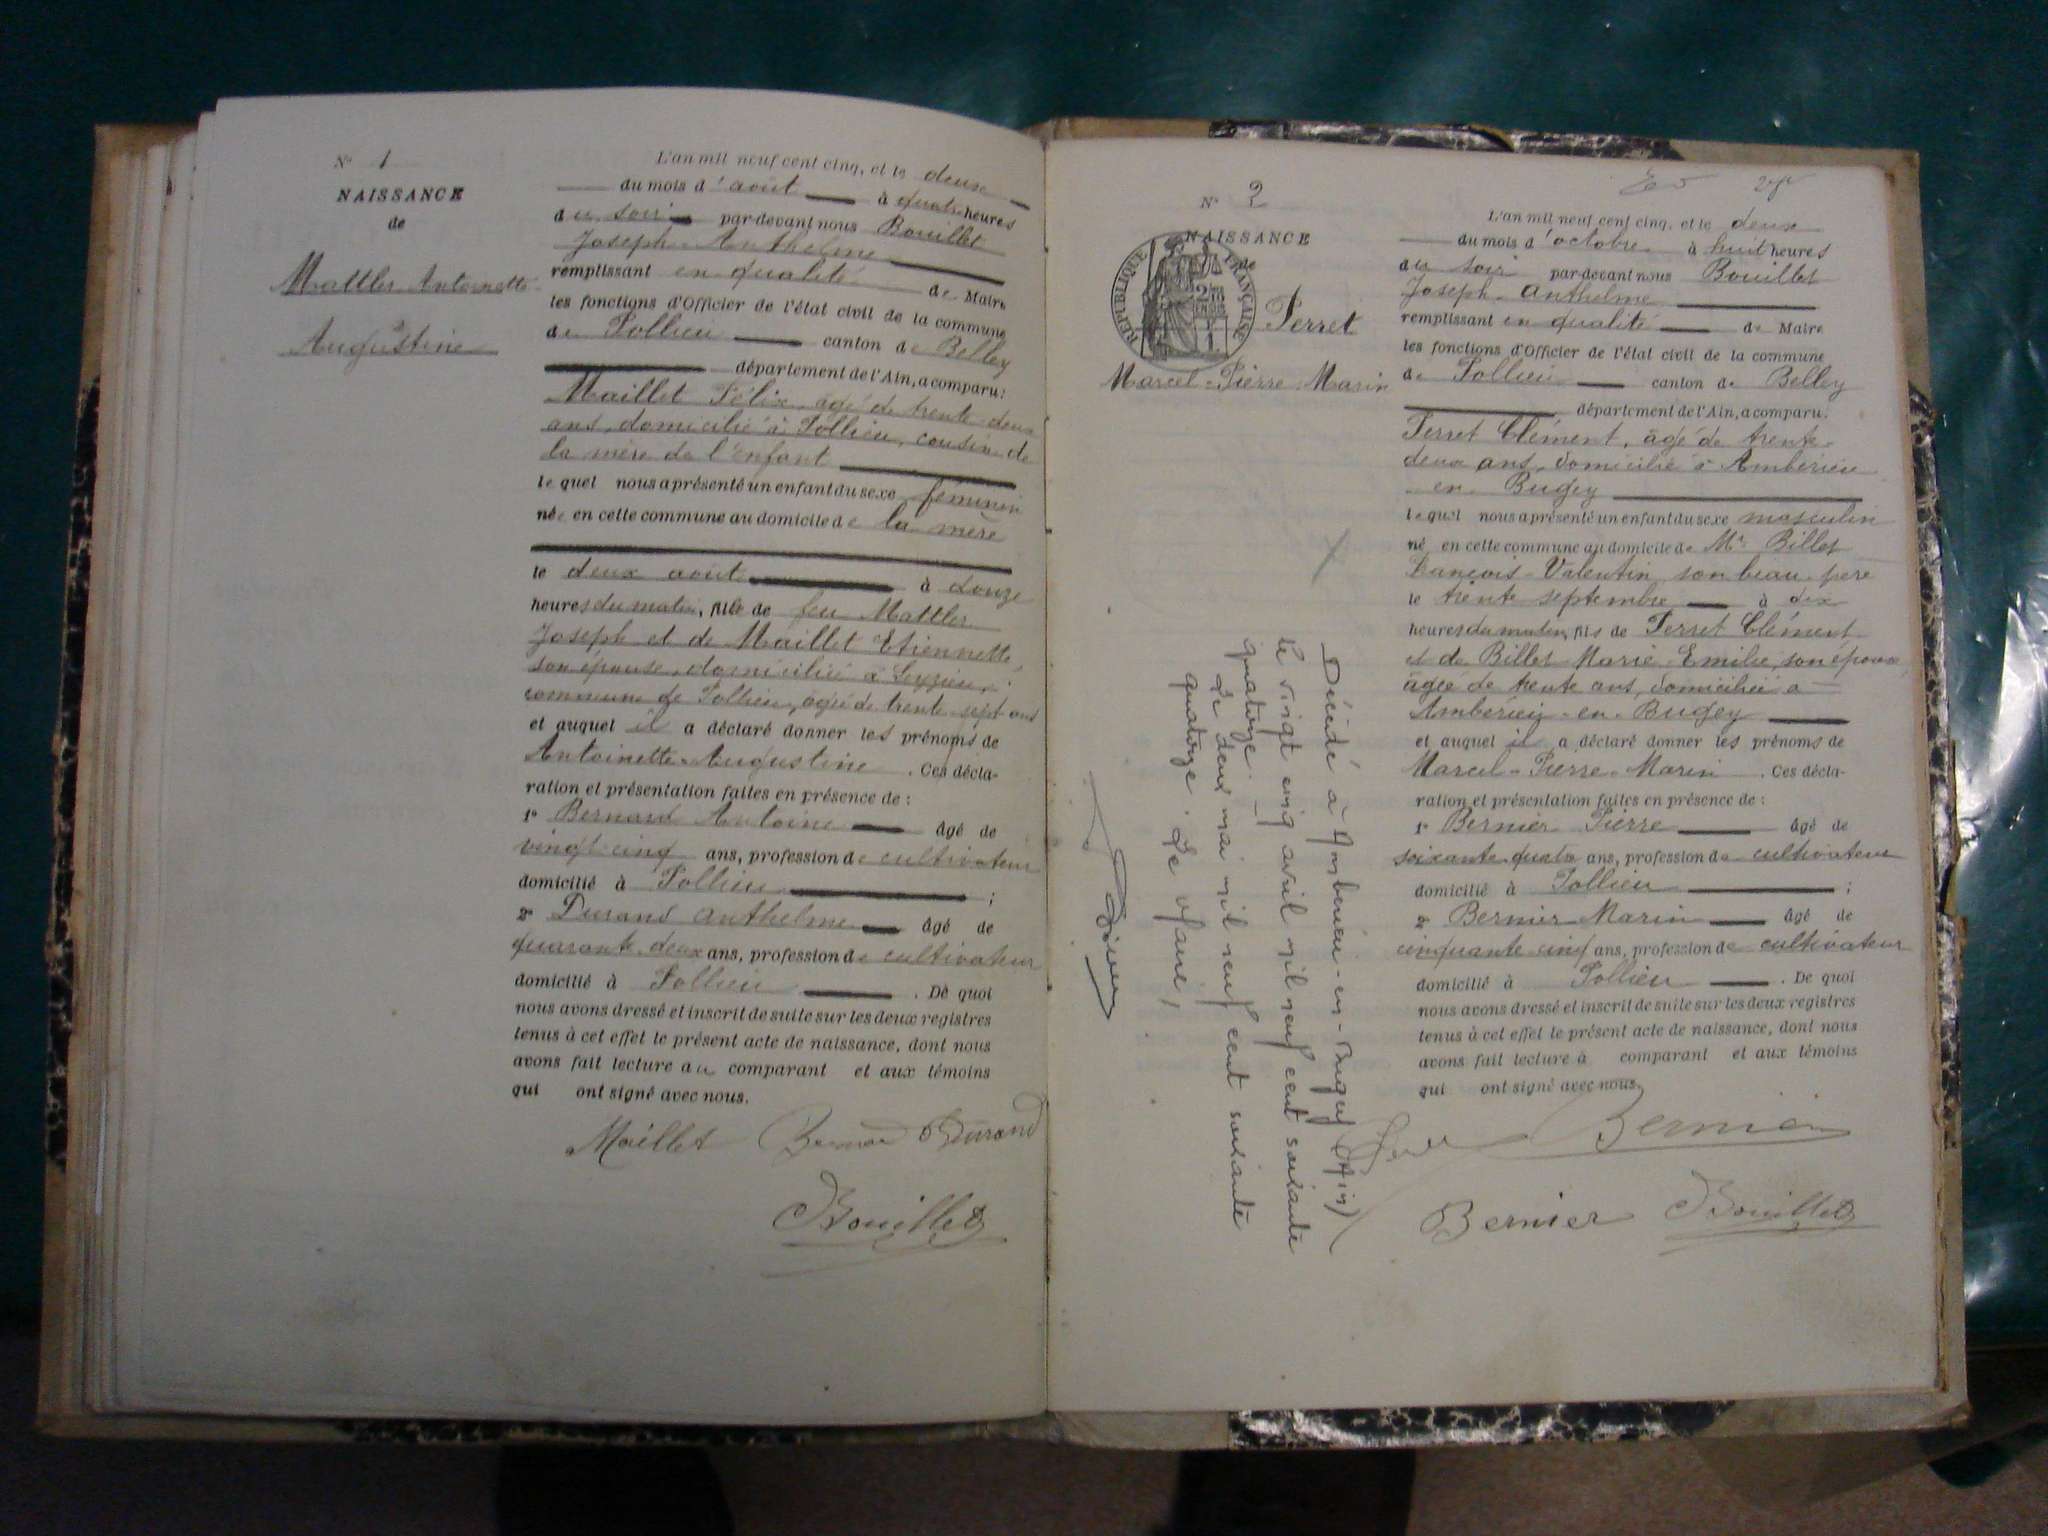 N° 1
NAISSANCE
de
Mattler Antoinette
Augustine
L'an mil neuf cent cinq, et le deux
du mois d'août à quatre heures
du soir par-devant nous Bouillet
Joseph-Anthelme
remplissant en qualité de Maire
les fonctions d'Officier de l'état civil de la commune
de Pollieu canton de Belley
département de l'Ain, a comparu:
Maillet Félix, âgé de trente-deux
ans, domicilié à Pollieu, cousin de
la mère de l'enfant
lequel nous a présenté un enfant du sexe féminin
née en cette commune au domicile de la mère
le deux août à douze
heures du matin, fille de feu Mattler
Joseph et de Maillet Etiennette,
son épouse, domiciliée à
commune de Pollieu, âgée de trente-sept ans
et auquel il a déclaré donner les prénoms de
Antoinette-Augustine. Ces décla-
ration et présentation faites en présence de :
1° Bernard Antoine âgé de
vingt-cinq ans, profession de cultivateur
domicilié à Pollieu ;
2° Durand Anthelme âgé de
quarante-deux ans, profession de cultivateur
domicilié à Pollieu. De quoi
nous avons dressé et inscrit de suite sur les deux registres
tenus à cet effet le présent acte de naissance, dont nous
avons fait lecture au comparant et aux témoins
qui ont signé avec nous.
Maillet Bernard Durand
Bouillet
N° 2
NAISSANCE
de
RÉPUBLIQUE FRANÇAISE
Perret
Marcel-Pierre-Marin
L'an mil neuf cent cinq, et le deux
du mois d'octobre à huit heures
du soir par-devant nous Bouillet
Joseph-Anthelme
remplissant en qualité de Maire
les fonctions d'Officier de l'état civil de la commune
de Pollieu canton de Belley
département de l'Ain, a comparu:
Perret Clément, âgé de trente-
deux ans, domicilié à Ambérieu
en-Bugey
lequel nous a présenté un enfant du sexe masculin
né en cette commune au domicile de Mr Billet
François-Valentin, son beau-père
le trente septembre à dix
heures du matin, fils de Perret Clément
et de Billet Marie-Emilie, son épouse
âgée de trente ans, domiciliée à
Ambérieu-en-Bugey
et auquel il a déclaré donner les prénoms de
Marcel-Pierre-Marin. Ces décla-
ration et présentation faites en présence de :
1° Bernier Pierre âgé de
soixante-quatre ans, profession de cultivateur
domicilié à Pollieu ;
2° Bernier Marin âgé de
cinquante-cinq ans, profession de cultivateur
domicilié à Pollieu. De quoi
nous avons dressé et inscrit de suite sur les deux registres
tenus à cet effet le présent acte de naissance, dont nous
avons fait lecture à comparant et aux témoins
qui ont signé avec nous.
Bernier
Bernier Bouillet
Décédé à Ambérieu-en-Bugey (Ain)
le vingt cinq avril mil neuf cent soixante
quatorze.
Le deux mai mil neuf cent soixante
quatorze. Le Maire,